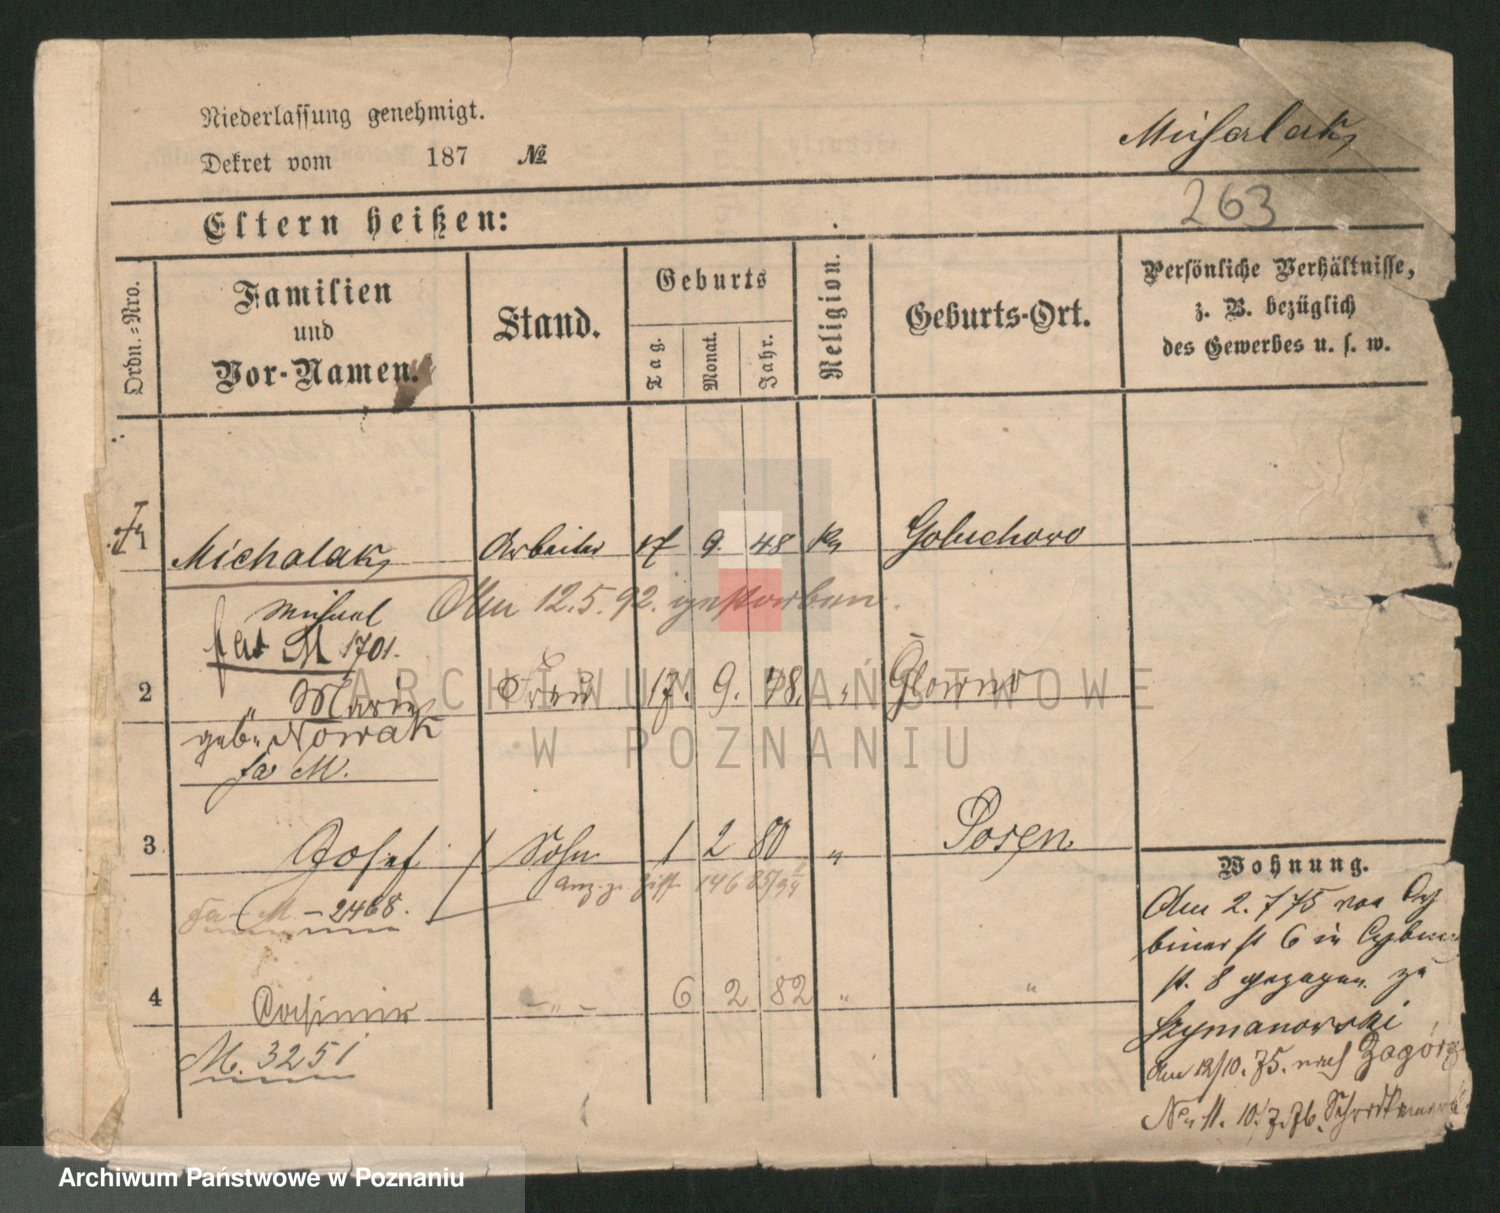 Niederlassung genehmigt.
Dekret vom 187 №
Michalak
263
Eltern heißen:
Ordn.-Nro.
Familien und Vor-Namen.
Stand.
Geburts
Tag.
Monat.
Jahr.
Religion.
Geburts-Ort.
Persönliche Verhältnisse,
z. B. bezüglich
des Gewerbes u. s. w.
1 Michalak Arbeiter 17 9. 48 k Goluchowo
Michael Am 12.5.92. gestorben.
fas M 1701.
2 " Marie Frau 17. 9. 48. " Glowno
geb. Nowak
fa M.
3 Josef Sohn 1 2 80 " Posen
146
Fa - M - 2468.
4 Casimir - " - 6 2 82 " "
M. 3251
Wohnung.
Am 2. 7 75 von Cy
biner st 6 in Cybin
st. 8 gezogen zu
Szymanowski
Am 12/10. 75. nach Zagórz
No 11. 10. 7. 76.
ARCHIWUM PAŃSTWOWE
W POZNANIU
Archiwum Państwowe w Poznaniu